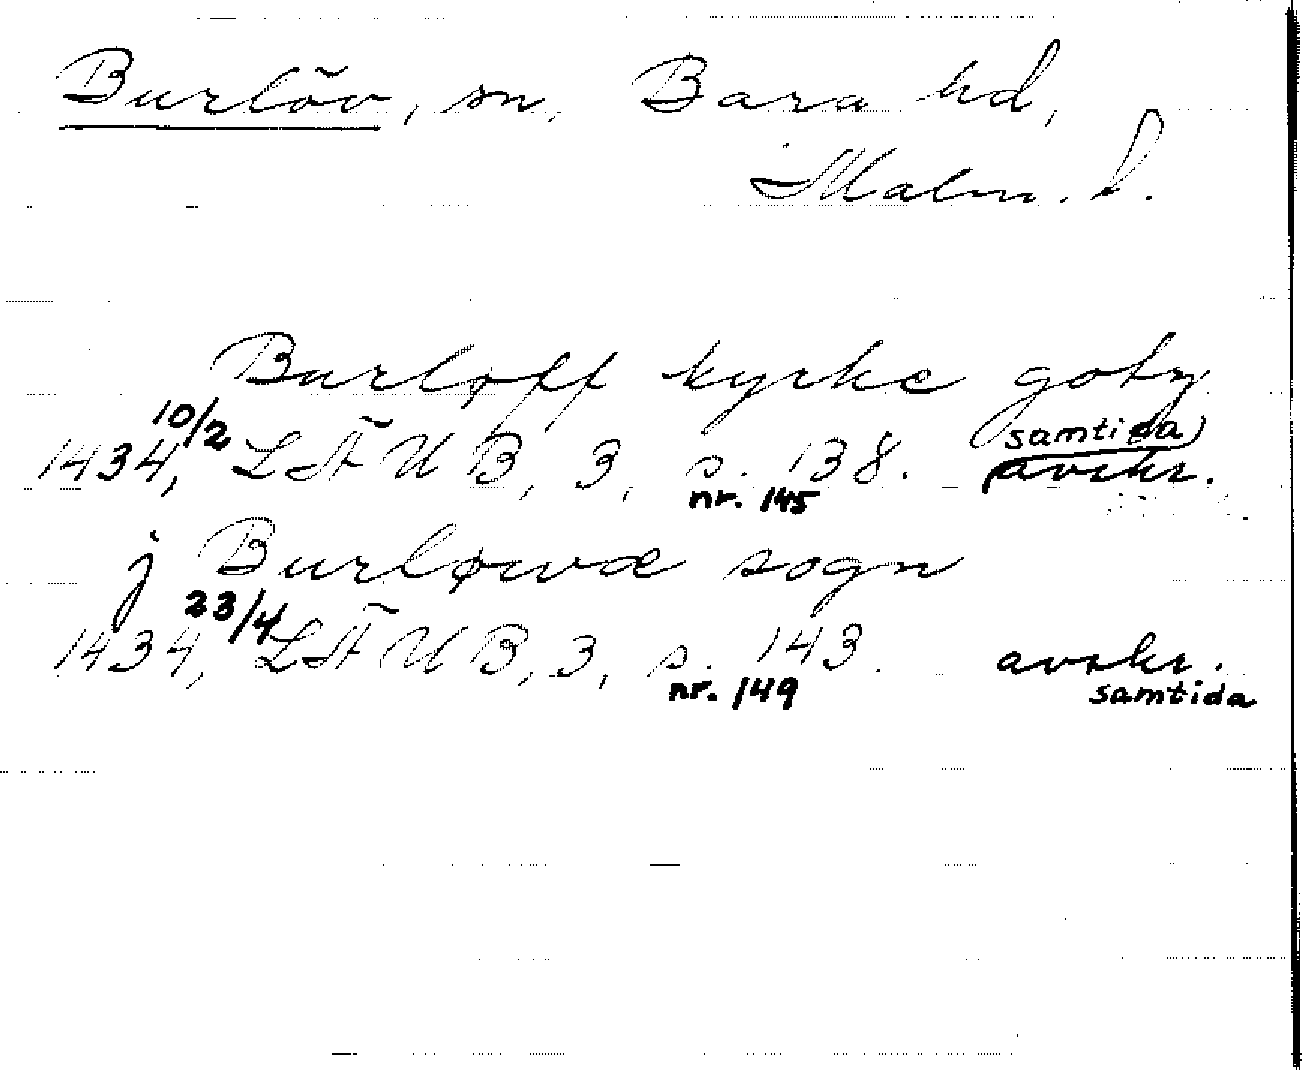 Burlöv, sn, Bara hd,
Malm. l.
Burløff kyrke gotz
10/2
samtida
1434, LÄUB, 3, s. 138. avskr.
nr. 145
j Burløwæ sogn
23/4
1434, LÄUB, 3, s. 143. avskr.
nr. 149 samtida